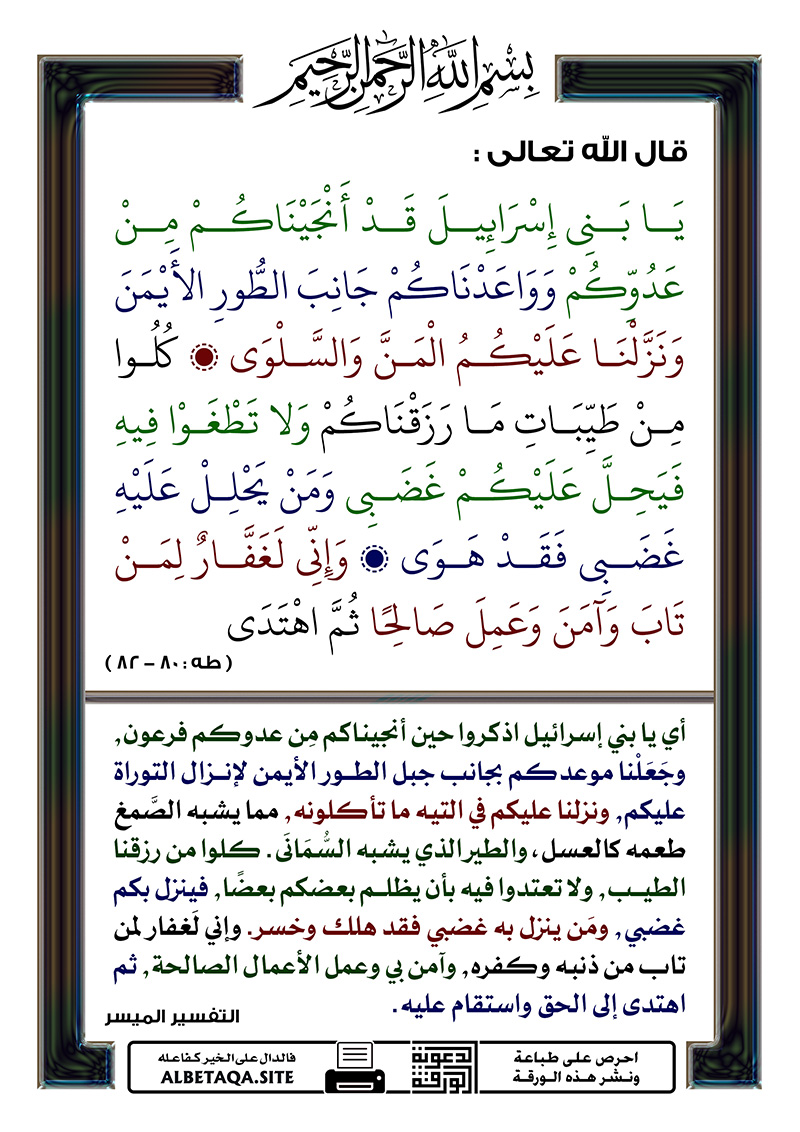 بِسْمِ اللهِ الرَّحْمَنِ الرَّحِيمِ
قال الله تعالى :
يَا بَنِي إِسْرَائِيلَ قَدْ أَنْجَيْنَاكُمْ مِنْ
عَدُوِّكُمْ وَوَاعَدْنَاكُمْ جَانِبَ الطُّورِ الأَيْمَنَ
وَنَزَّلْنَا عَلَيْكُمُ الْمَنَّ وَالسَّلْوَى ۞ كُلُوا
مِنْ طَيِّبَاتِ مَا رَزَقْنَاكُمْ وَلا تَطْغَوْا فِيهِ
فَيَحِلَّ عَلَيْكُمْ غَضَبِي وَمَنْ يَحْلِلْ عَلَيْهِ
غَضَبِي فَقَدْ هَوَى ۞ وَإِنِّي لَغَفَّارٌ لِمَنْ
تَابَ وَآمَنَ وَعَمِلَ صَالِحًا ثُمَّ اهْتَدَى
( طه : ٨٠ - ٨٢ )
أي يا بني إسرائيل اذكروا حين أنجيناكم مِن عدوكم فرعون,
وجَعَلْنا موعدكم بجانب جبل الطور الأيمن لإنزال التوراة
عليكم, ونزلنا عليكم في التيه ما تأكلونه, مما يشبه الصَّمغ
طعمه كالعسل، والطير الذي يشبه السُّمَانَى. كلوا من رزقنا
الطيب, ولا تعتدوا فيه بأن يظلم بعضكم بعضًا, فينزل بكم
غضبي, ومَن ينزل به غضبي فقد هلك وخسر. وإني لَغفار لمن
تاب من ذنبه وكفره, وآمن بي وعمل الأعمال الصالحة, ثم
اهتدى إلى الحق واستقام عليه.
التفسير الميسر
احرص على طباعة
ونشر هذه الورقة
الدعوية
الورقة
فالدال على الخير كفاعله
ALBETAQA.SITE